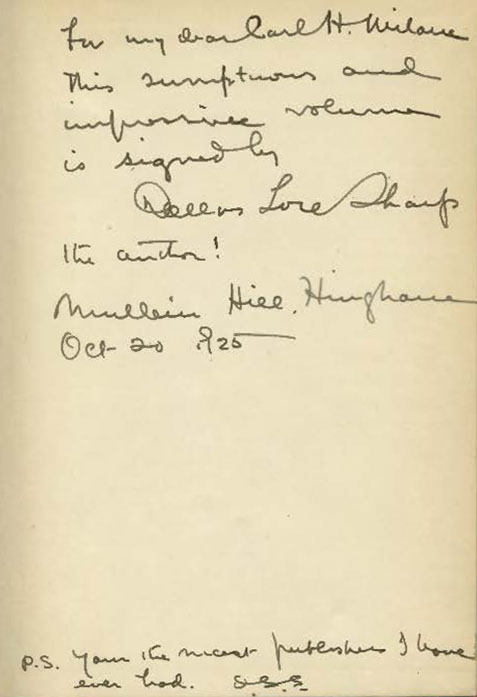 For my dear Carl H. Milam
This sumptuous and
impressive volume
is signed by
Dallas Lore Sharp
the author!
Mullein Hill, Hingham
Oct 20 1925
P.S. Your the nicest publishers I have
ever had. D.L.S.